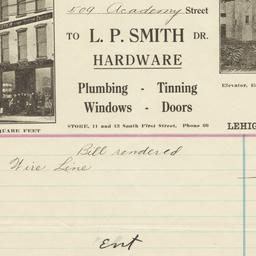 509 Academy Street
TO L. P. SMITH DR.
HARDWARE
Plumbing - Tinning
Windows - Doors
Elevator,
STORE, 11 and 13 South First Street, Phone 66
QUARE FEET
LEHIG
Bill rendered
Wire Line
Ent